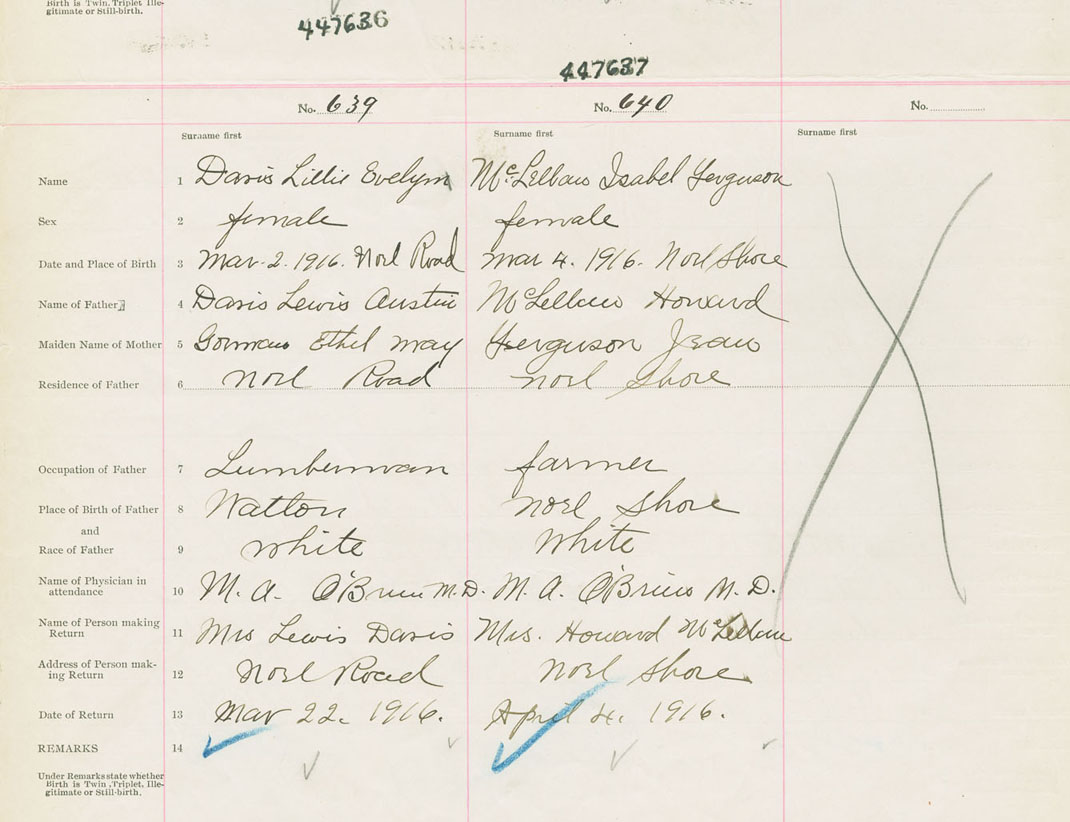 Birth is Twin, Triplet, Ille-
gitimate or Still-birth.
447636
447637
No. 639 No. 640 No.
Surname first Surname first Surname first
Name 1 Davis Lillie Evelyn McLellan Isabel Ferguson
Sex 2 female female
Date and Place of Birth 3 Mar. 2. 1916. Noel Road Mar 4. 1916. Noel Shore
Name of Father 4 Davis Lewis Austin McLellan Howard
Maiden Name of Mother 5 Gorman Ethel May Ferguson Jean
Residence of Father 6 Noel Road Noel Shore
Occupation of Father 7 Lumberman farmer
Place of Birth of Father 8 Walton Noel Shore
and
Race of Father 9 White White
Name of Physician in
attendance 10 M. A. O'Brien M.D. M. A. O'Brien M.D.
Name of Person making
Return 11 Mrs Lewis Davis Mrs. Howard McLellan
Address of Person mak-
ing Return 12 Noel Road Noel Shore
Date of Return 13 Mar 22. 1916. April 4. 1916.
REMARKS 14
Under Remarks state whether
Birth is Twin, Triplet, Ille-
gitimate or Still-birth.